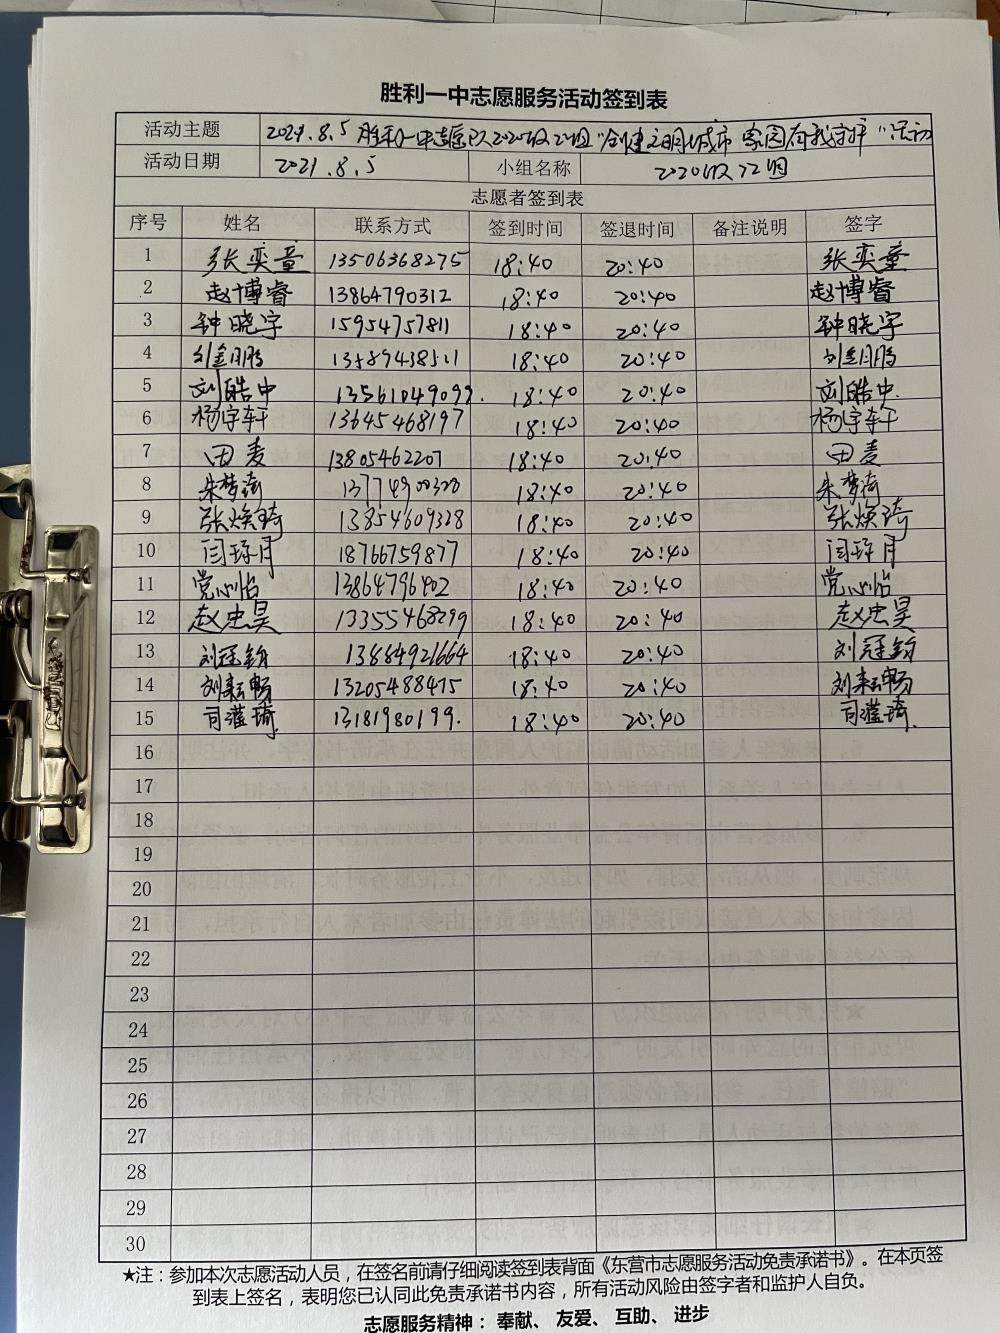 胜利一中志愿服务活动签到表
活动主题 2021.8.5 胜利一中志愿队2020级22组"创建文明城市 家园有我守护"活动
活动日期 2021.8.5 小组名称 2020级22组
志愿者签到表
序号 姓名 联系方式 签到时间 签退时间 备注说明 签字
1 张奕童 13506368275 18:40 20:40 张奕童
2 赵博睿 13864790312 18:40 20:40 赵博睿
3 钟晓宇 15954757811 18:40 20:40 钟晓宇
4 13589438511 18:40 20:40
5 刘皓中 13561049099. 18:40 20:40 刘皓中
6 杨宇轩 13645468197 18:40 20:40 杨宇轩
7 田麦 13805462207 18:40 20:40 田麦
8 朱梦琦 18:40 20:40 朱梦琦
9 张焕琦 13854609328 18:40 20:40 张焕琦
10 闫琈月 18766759877 18:40 20:40 闫琈月
11 党心怡 18:40 20:40 党心怡
12 赵忠昊 13355468299 18:40 20:40 赵忠昊
13 刘冠钧 13884921664 18:40 20:40 刘冠钧
14 刘耘畅 13205488475 18:40 20:40 刘耘畅
15 司滢琦 13181980199. 18:40 20:40 司滢琦
16
17
18
19
20
21
22
23
24
25
26
27
28
29
30
★注：参加本次志愿活动人员，在签名前请仔细阅读签到表背面《东营市志愿服务活动免责承诺书》。在本页签
到表上签名，表明您已认同此免责承诺书内容，所有活动风险由签字者和监护人自负。
志愿服务精神：奉献、友爱、互助、进步